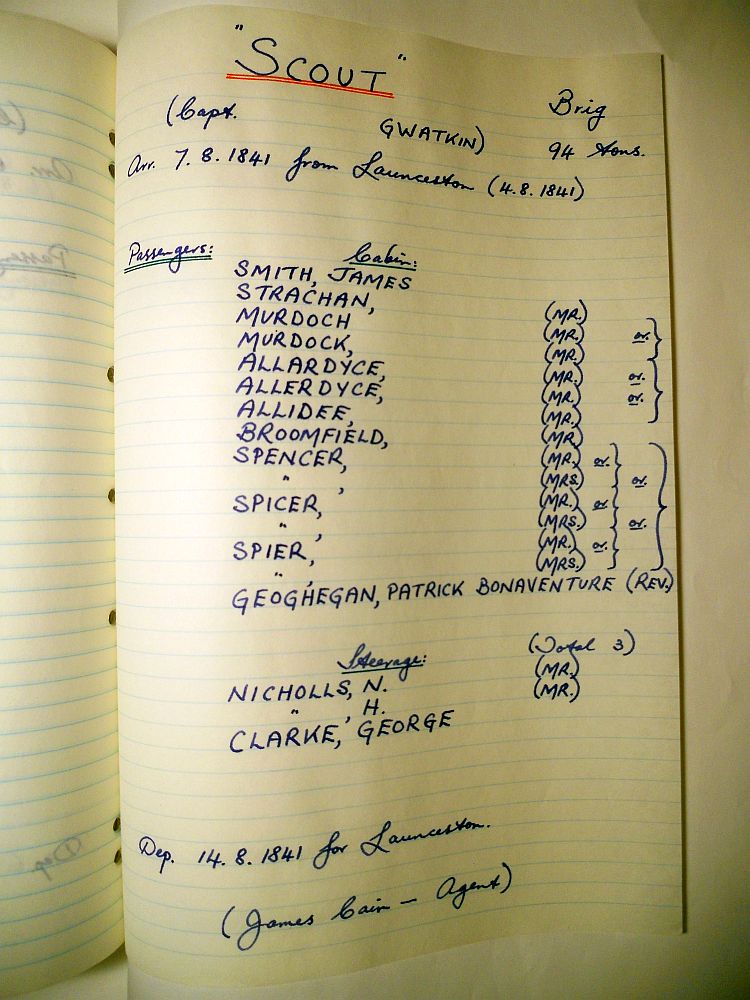 "SCOUT"
(Capt. GWATKIN) Brig
94 tons.
Arr. 7.8.1841 from Launceston (4.8.1841)
Passengers: Cabin:
SMITH, JAMES
STRACHAN, (MR.)
MURDOCH (MR.) or.
MURDOCK, (MR.)
ALLARDYCE, (MR.) or.
ALLERDYCE, (MR.) or.
ALLIDEE, (MR.)
BROOMFIELD, (MR)
SPENCER, (MR.) or.
" , (MRS) or.
SPICER, (MR.) or.
" , (MRS.) or.
SPIER, (MR.) or.
" , (MRS.)
GEOGHEGAN, PATRICK BONAVENTURE (REV.)
Steerage: (Total 3)
NICHOLLS, N. (MR.)
" , H. (MR.)
CLARKE, GEORGE
Dep. 14.8.1841 for Launceston.
(James Cain - Agent)